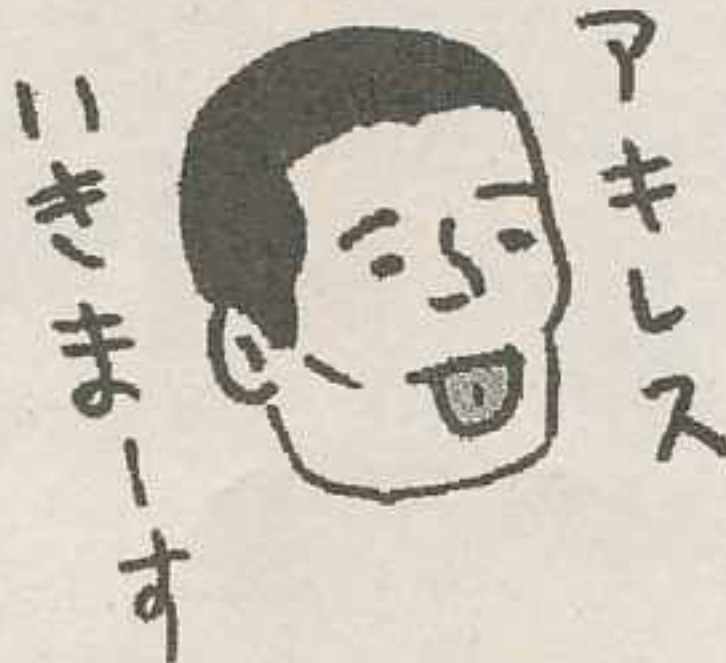 アキレス
いきまーす